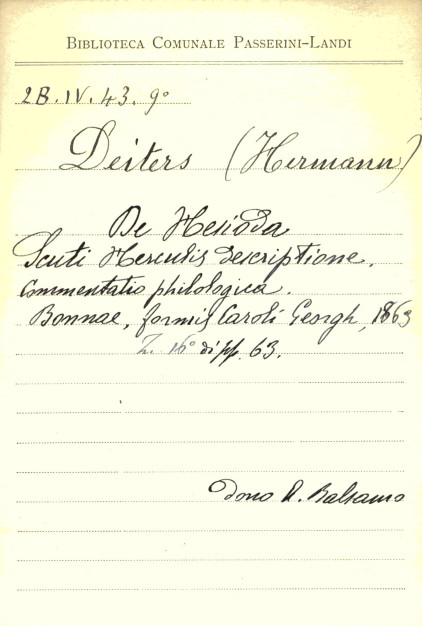 BIBLIOTECA COMUNALE PASSERINI-LANDI
2B.IV.43.9°
Deiters (Hermann)
De Hesioda
Scuti Herculis descriptione.
Commentatio philologica.
Bonnae, formis Caroli Georgh, 1863
16° di pp. 63.
Dono A. Balsamo